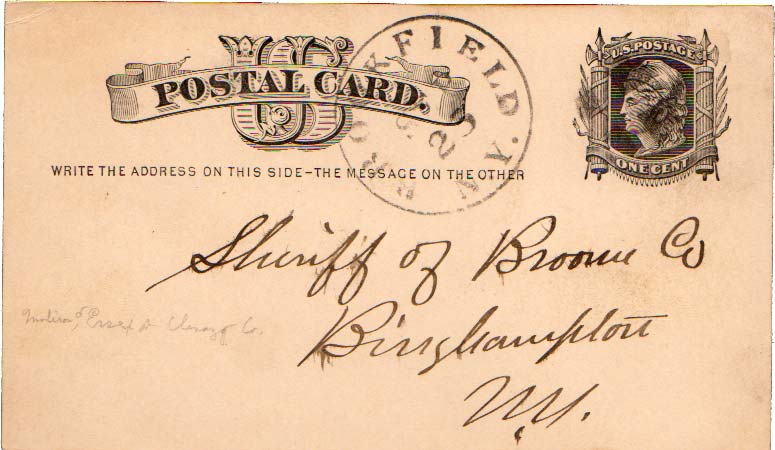 US
POSTAL CARD.
BROOKFIELD N.Y.
23
U.S. POSTAGE
ONE CENT
WRITE THE ADDRESS ON THIS SIDE–THE MESSAGE ON THE OTHER
Sheriff of Broome Co
Binghampton
N.Y.
Essex Co.